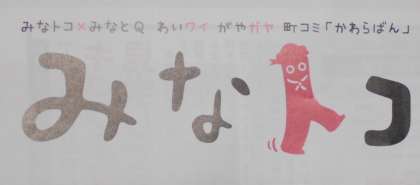 みなトコ×みなとQ わいワイ がやガヤ 町コミ「かわらばん」
みなトコ